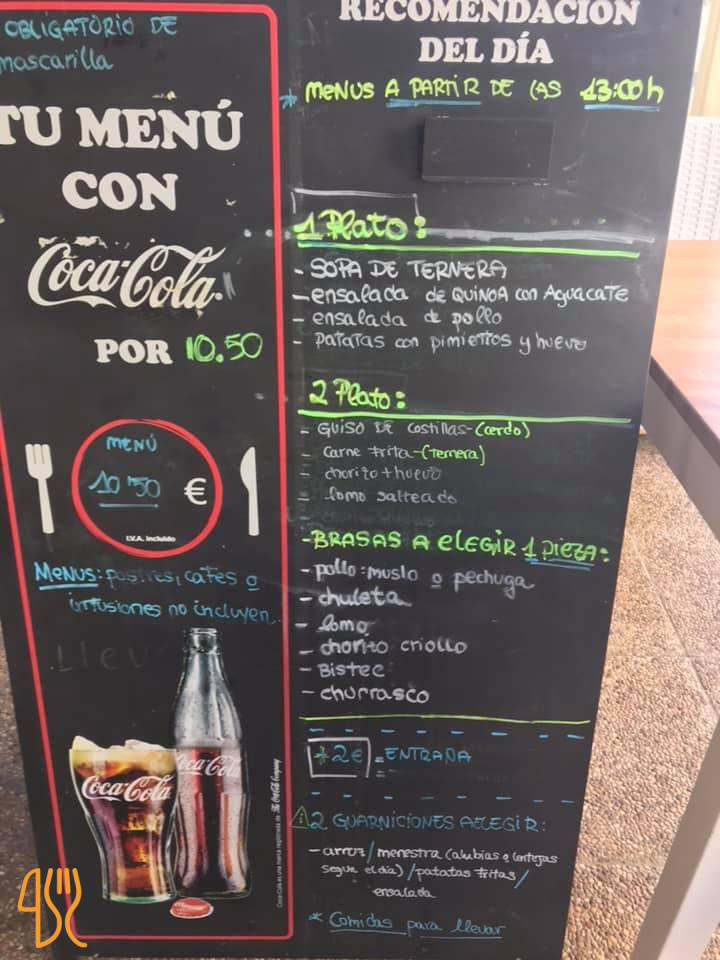 OBLIGATORIO DE
mascarilla
TU MENÚ
CON
Coca-Cola
POR 10.50
MENÚ
10'50 €
I.V.A. incluido
Menus: postres, cafes o
infusiones no incluyen
Llev
Coca-Cola
Coca-Cola
RECOMENDACIÓN
DEL DÍA
* MENUS A PARTIR DE LAS 13:00h
1 Plato:
- SOPA DE TERNERA
- ensalada de QUINOA con Aguacate
- ensalada de pollo
- patatas con pimientos y huevo
2 Plato:
- GUISO DE costillas-(cerdo)
- carne frita-(Ternera)
- chorizo + huevo
- lomo salteado
- BRASAS A ELEGIR 1 PIEZA:
- pollo: muslo o pechuga
- chuleta
- lomo
- chorito criollo
- Bistec
- churrasco
+2€ = ENTRAÑA
2 GUARNICIONES A ELEGIR:
- arroz / menestra (alubias o lentejas
segun el dia) / patatas fritas /
ensalada
* Comidas para llevar